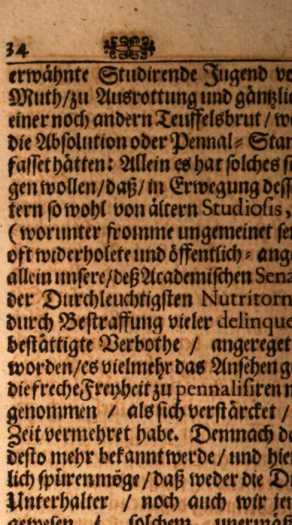 34
erwähnte Studirende Jugend ve
Muth/zu Ausrottung und gäntzlic
einer noch andern Teuffelsbrut / we
die Absolution oder Pennal-Stan
fasset hätten: Allein es hat solches si
gen wollen/daß/in Erwegung dess
tern so wohl von ältern Studiosis,
(worunter fromme ungemeinet se
oft widerholete und öffentlich-ange
allein unsere/deß Academischen Sena
der Durchleuchtigsten Nutritorn
durch Bestraffung vieler delinque
bestättigte Verbothe / angereget
worden/es vielmehr das Ansehen g
die freche Freyheit zu pennalisiren n
genommen / als sich verstärcket /
Zeit vermehret habe. Demnach de
desto mehr bekannt werde/ und hie
lich spüren möge/daß weder die D
Unterhalter / noch auch wir jem
gewesen / solchem unermäß